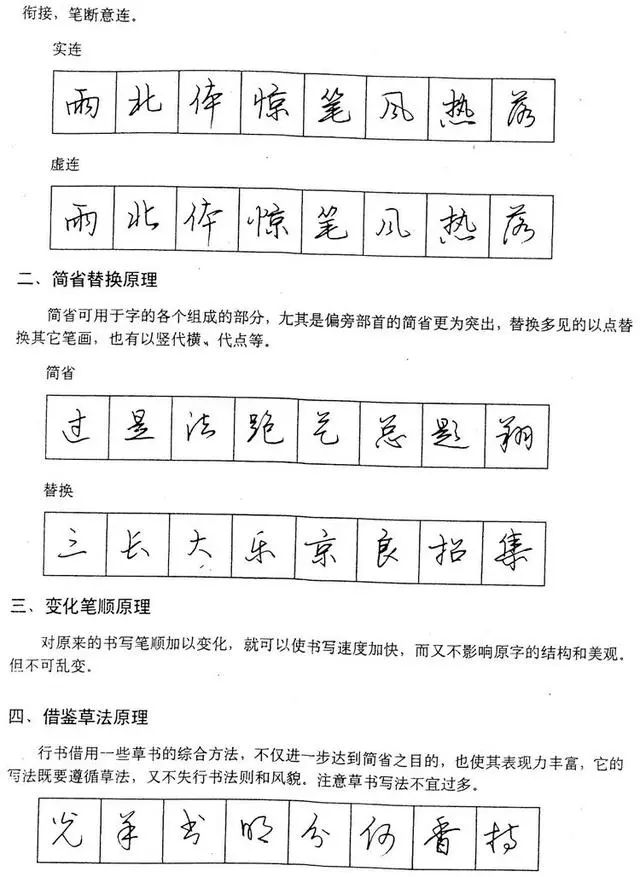 衔接，笔断意连。
实连
雨 北 体 惊 笔 风 热 落
虚连
雨 北 体 惊 笔 风 热 落
二、简省替换原理
简省可用于字的各个组成的部分，尤其是偏旁部首的简省更为突出，替换多见的以点替
换其它笔画，也有以竖代横、代点等。
简省
过 是 法 跑 包 总 题 翔
替换
三 长 大 乐 京 良 招 集
三、变化笔顺原理
对原来的书写笔顺加以变化，就可以使书写速度加快，而又不影响原字的结构和美观。
但不可乱变。
四、借鉴草法原理
行书借用一些草书的综合方法，不仅进一步达到简省之目的，也使其表现力丰富，它的
写法既要遵循草法，又不失行书法则和风貌。注意草书写法不宜过多。
光 羊 书 明 分 何 香 持